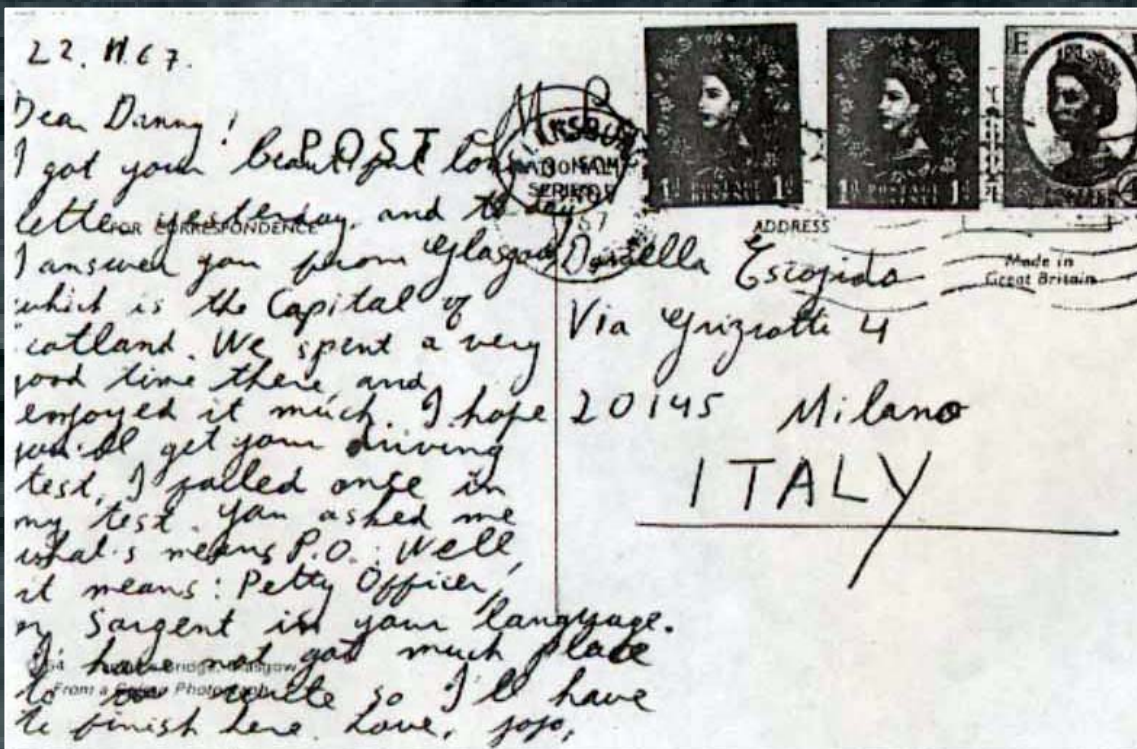 22. 11 67.
Dear Danny!
I got your beautiful long
letter yesterday and to day
I answer you from Glasgow
which is the Capital of
cotland. We spent a very
good time there, and
enjoyed it much. I hope
you'll get your driving
test, I falled once in
my test. You asked me
what's means P.O.: Well,
it means: Petty Officer,
or Sargent in your language.
I have not got much place
to write so I'll have
to finish here. Love, jojo,
POST
FOR CORRESPONDENCE
ADDRESS
Made in
Great Britain
Escojido
Via Griziotti 4
20145 Milano
ITALY
1D POSTAGE 1D
1D POSTAGE 1D
E
NOV
Bridge, Glasgow
From a Colour Photograph